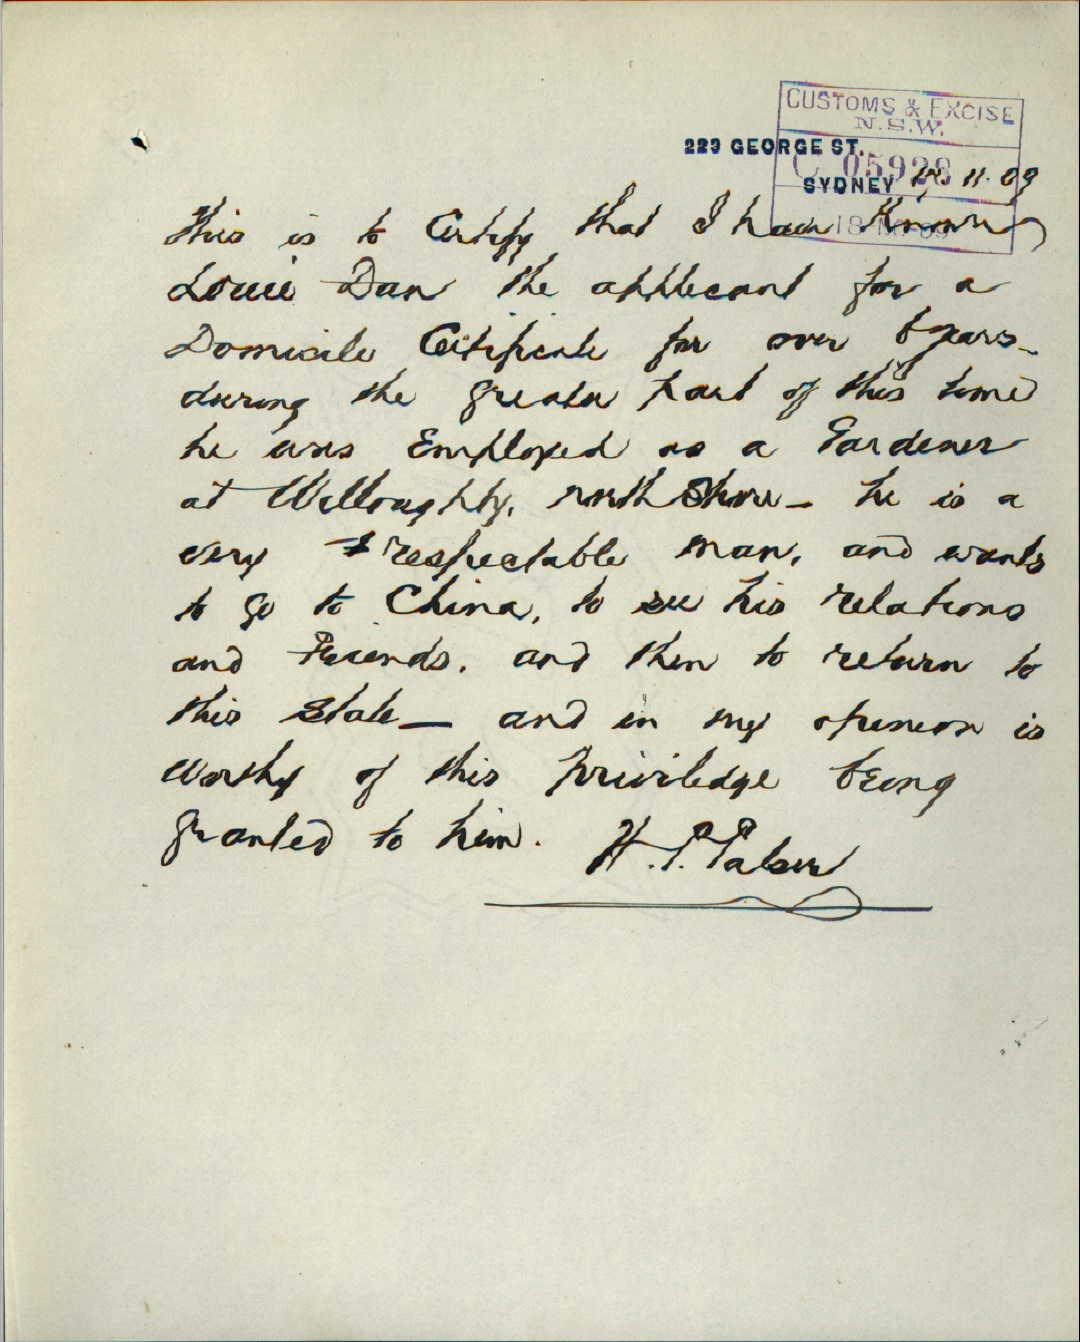 CUSTOMS & EXCISE
N.S.W.
223 GEORGE ST.
C 05928
SYDNEY 11.09
18 09
This is to Certify that I have Known
Louie Dan the applicant for a
Domicile Certificate for over 6 years
during the greater part of this time
he was Employed as a Gardener
at Willoughby, north Shore - he is a
very respectable man, and wants
to go to China, to see his relations
and Friends, and then to return to
this State - and in my opinion is
worthy of this priviledge being
granted to him.